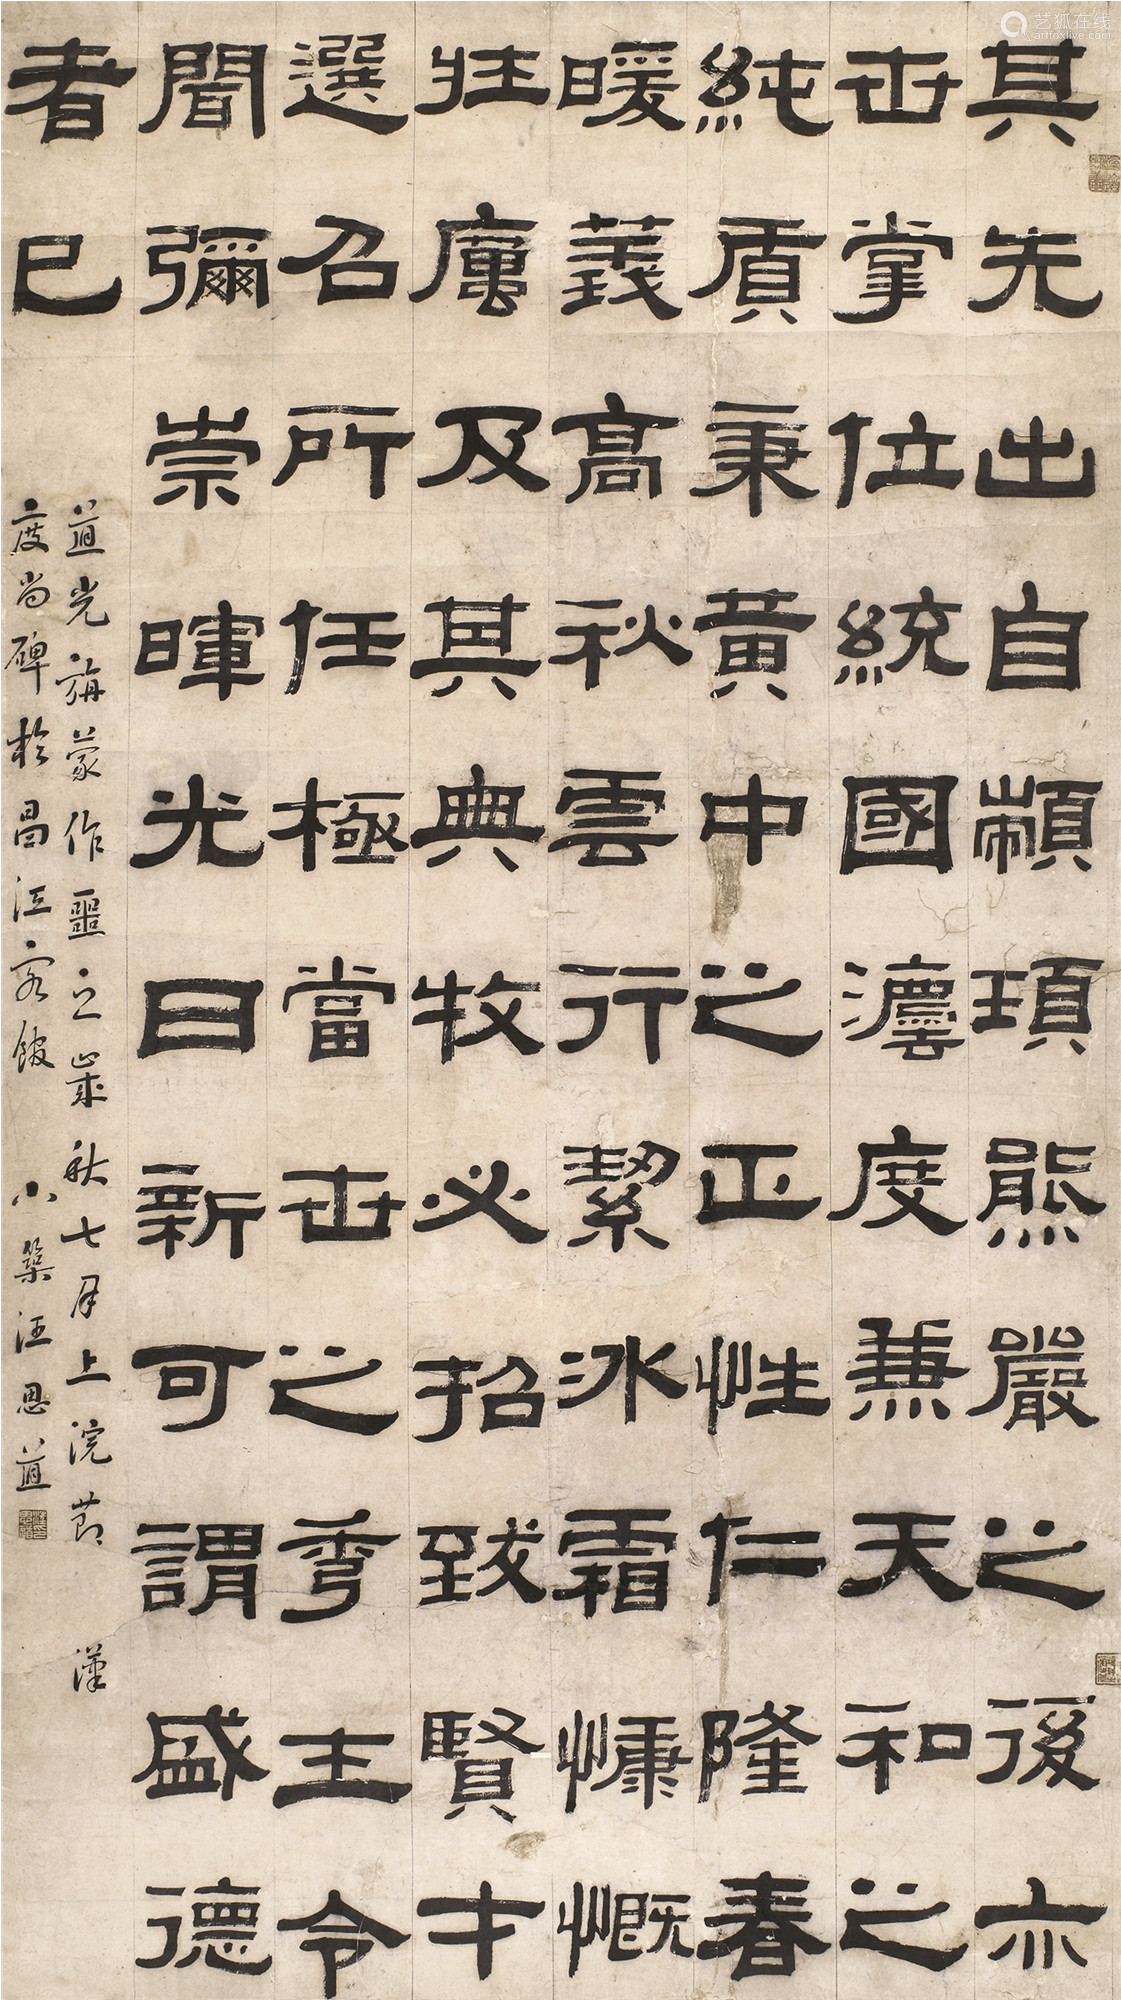 艺狐在线
artfoxlive.com
其先出自顓頊熊嚴之後亦
世掌位統國灋度兼天和之
純質秉黃中之正性仁隆春
暖義高秋雲行絜冰霜慷慨
壯厲及其典牧必招致賢才
選召所任極當世之秀主令
聞彌崇暉光日新可謂盛德
者已
道光旃蒙作噩之歲秋七月上浣節 漢
度尚碑於昌江客館 小築汪思道